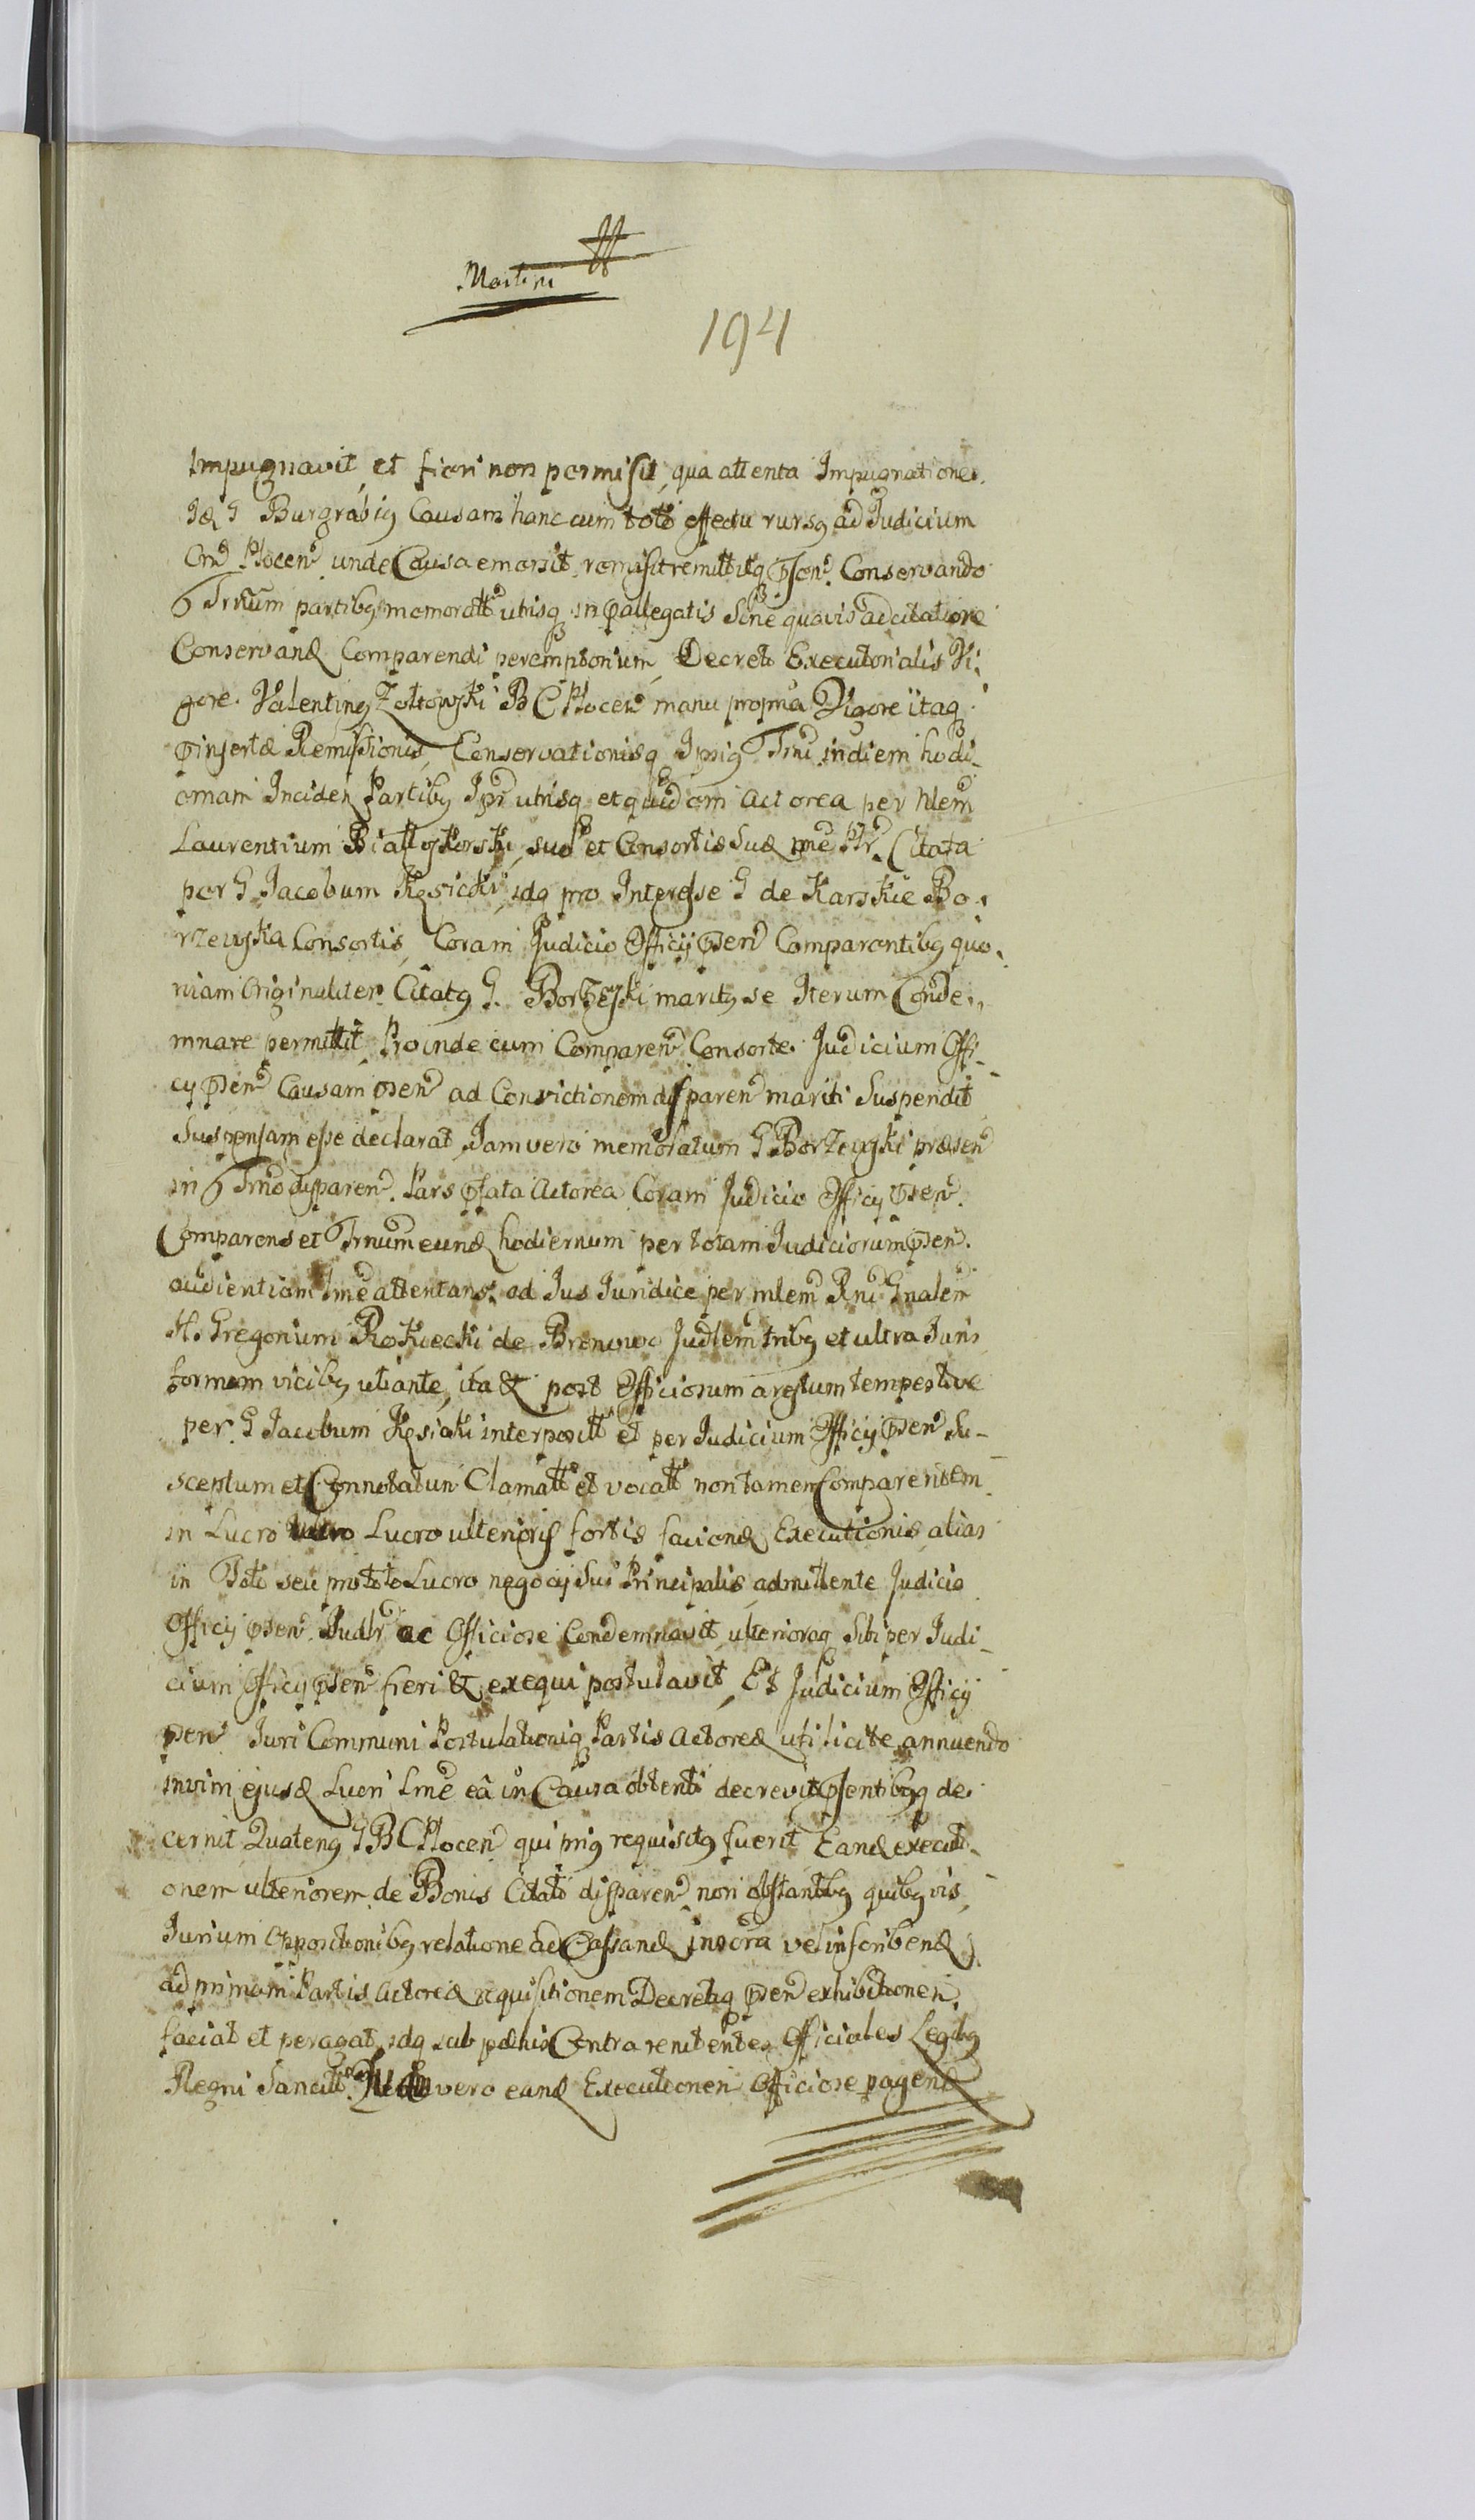 Martini
194
Impugnavit, et fieri non permisit, qua attenta Impugnatione
G Burgrabiꝰ Causam hanc cum toto effectu rursꝫ ad Judicium
Cñe Plocen. unde Causa emersit, remisit remittitqꝫ ꝑsen. Conservando
Trnum partibꝫ memoratt utrisqꝫ in ꝑallegatis Sine quavis adcitatione
Conservand Comparendi peremptorium, Decreti Executorialis Vi-
gore. Valentinꝫ Zołtowski B C Plocen manu propria Vigore itaqꝫ
ꝑinsertæ Remissionis, Conservationisqꝫ Ipsiꝫ Trni in diem hodi-
ernam Inciden Partibꝫ utrisqꝫ et quidem Actorea per Nlem
Laurentium Białoskorski, suo et Consortis Suæ nne Citata
per G Jacobum Kęsicki, idqꝫ pro Interesse G de Karskie Bo-
rzewska Consortis, Coram Judicio Officij ꝑsen Comparentibꝫ quo-
niam Originaliter Citatꝫ G. Borzewski maritꝫ se Iterum Conde-
mnare permittit, Proinde cum Comparen Consorte Judicium Offi-
cij ꝑsen Causam ꝑsen ad Convictionem disparen mariti Suspendit
Suspensam esse declarat, Jam vero memoratum G Borzewski præsen
in Trno disparen. Pars ꝑfata Actorea Coram Judicio Officij ꝑsen.
Comparens et Trnum eund hodiernum per totam Judiciorum ꝑsen.
audientiam lme attentans ad Jus Juridice per mlem Rni Gnalem
H. Gregorium Rokicki de Bronowo Judlem tribꝫ et ultra Juris
formam vicibꝫ utiante, ita & post Officiosum arestum tempestive
per G Jacobum Kęsicki interpositt et per Judicium Officij ꝑsen Su-
sceptum et Connotatum Clamatt et vocatt non tamen Comparentem
in Lucro Lucro ulterioris fortis faciend Executionis, alias
in Toto seu pro toto Lucro negocij Sui Principalis, admittente Judicio
Officij ꝑsen. Judlr ac Officiose Condemnavit, ulterioraqꝫ Sibi per Judi-
cium Officij ꝑsen fieri & exequi postulavit, Et Judicium Officij
ꝑsen Juri Communi Postulationiqꝫ Partis Actoreæ uti licitæ annuendo
in vim ejusd Lucri lme ea in Causa obtenti decrevit ꝑsentibꝫqꝫ de-
cernit Quatenꝫ G B C Plocen qui priꝫ requisitꝫ fuerit Eand executi-
onem ulteriorem de Bonis Citati disparen non obstantibꝫ quibꝫvis
Jurium Oppositionibꝫ relatione ad Cassand vel inscribend
ad primam Partis Actoreæ requisitionem Decretiqꝫ ꝑsen exhibitionem
faciat et peragat, idqꝫ sub pœnis Contra renitentes Officiales Legibꝫ
Regni Sancitt vero eand Executionem Officiose pagend